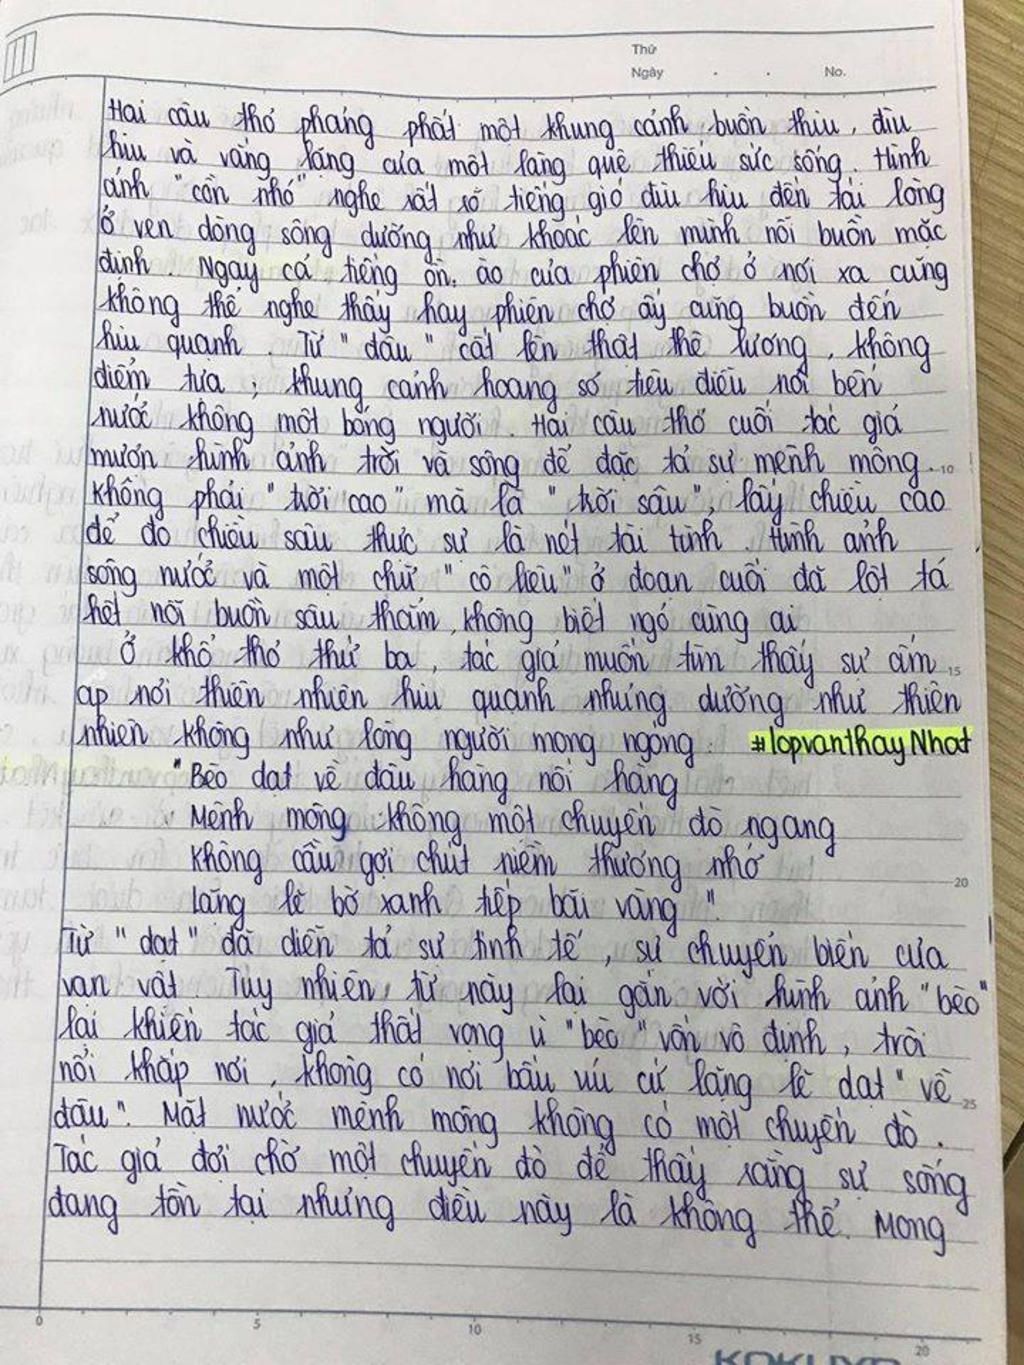 Thứ
Ngày . . No.
Hai câu thơ phảng phất một khung cảnh buồn thiu, đìu
hiu và vắng lặng của một làng quê thiếu sức sống. Hình
ảnh "cồn nhỏ" nghe rất rõ tiếng gió đìu hiu đến tái lòng
ở ven dòng sông dường như khoác lên mình nỗi buồn mặc
định. Ngay cả tiếng ồn ào của phiên chợ ở nơi xa cũng
không thể nghe thấy hay phiên chợ ấy cũng buồn đến
hiu quạnh. Từ "đâu" cất lên thật thê lương, không
điểm tựa; khung cảnh hoang sơ tiêu điều nơi bến
nước không một bóng người. Hai câu thơ cuối tác giả
mượn hình ảnh trời và sông để đặc tả sự mênh mông. 10
Không phải "trời cao" mà là "trời sâu", lấy chiều cao
để đo chiều sâu thực sự là nét tài tình. Hình ảnh
sông nước và một chữ "cô liêu" ở đoạn cuối đã lột tả
hết nỗi buồn sâu thẳm, không biết ngỏ cùng ai
Ở khổ thơ thứ ba, tác giả muốn tìm thấy sự ấm 15
áp nơi thiên nhiên hiu quạnh nhưng dường như thiên
nhiên không như lòng người mong ngóng. #lopvanthayNhat
"Bèo dạt về đâu hàng nối hàng
Mênh mông không một chuyến đò ngang
Không cầu gợi chút niềm thương nhớ 20
Lặng lẽ bờ xanh tiếp bãi vàng".
Từ "dạt" đã diễn tả sự tinh tế, sự chuyển biến của
vạn vật. Tuy nhiên, từ này lại gắn với hình ảnh "bèo"
lại khiến tác giả thất vọng vì "bèo" vốn vô định, trôi
nổi khắp nơi, không có nơi bấu víu cứ lặng lẽ dạt "về 25
đâu". Mặt nước mênh mông không có một chuyến đò.
Tác giả đợi chờ một chuyến đò để thấy rằng sự sống
đang tồn tại nhưng điều này là không thể. Mong
0 5 10 15 20
KOKUYO